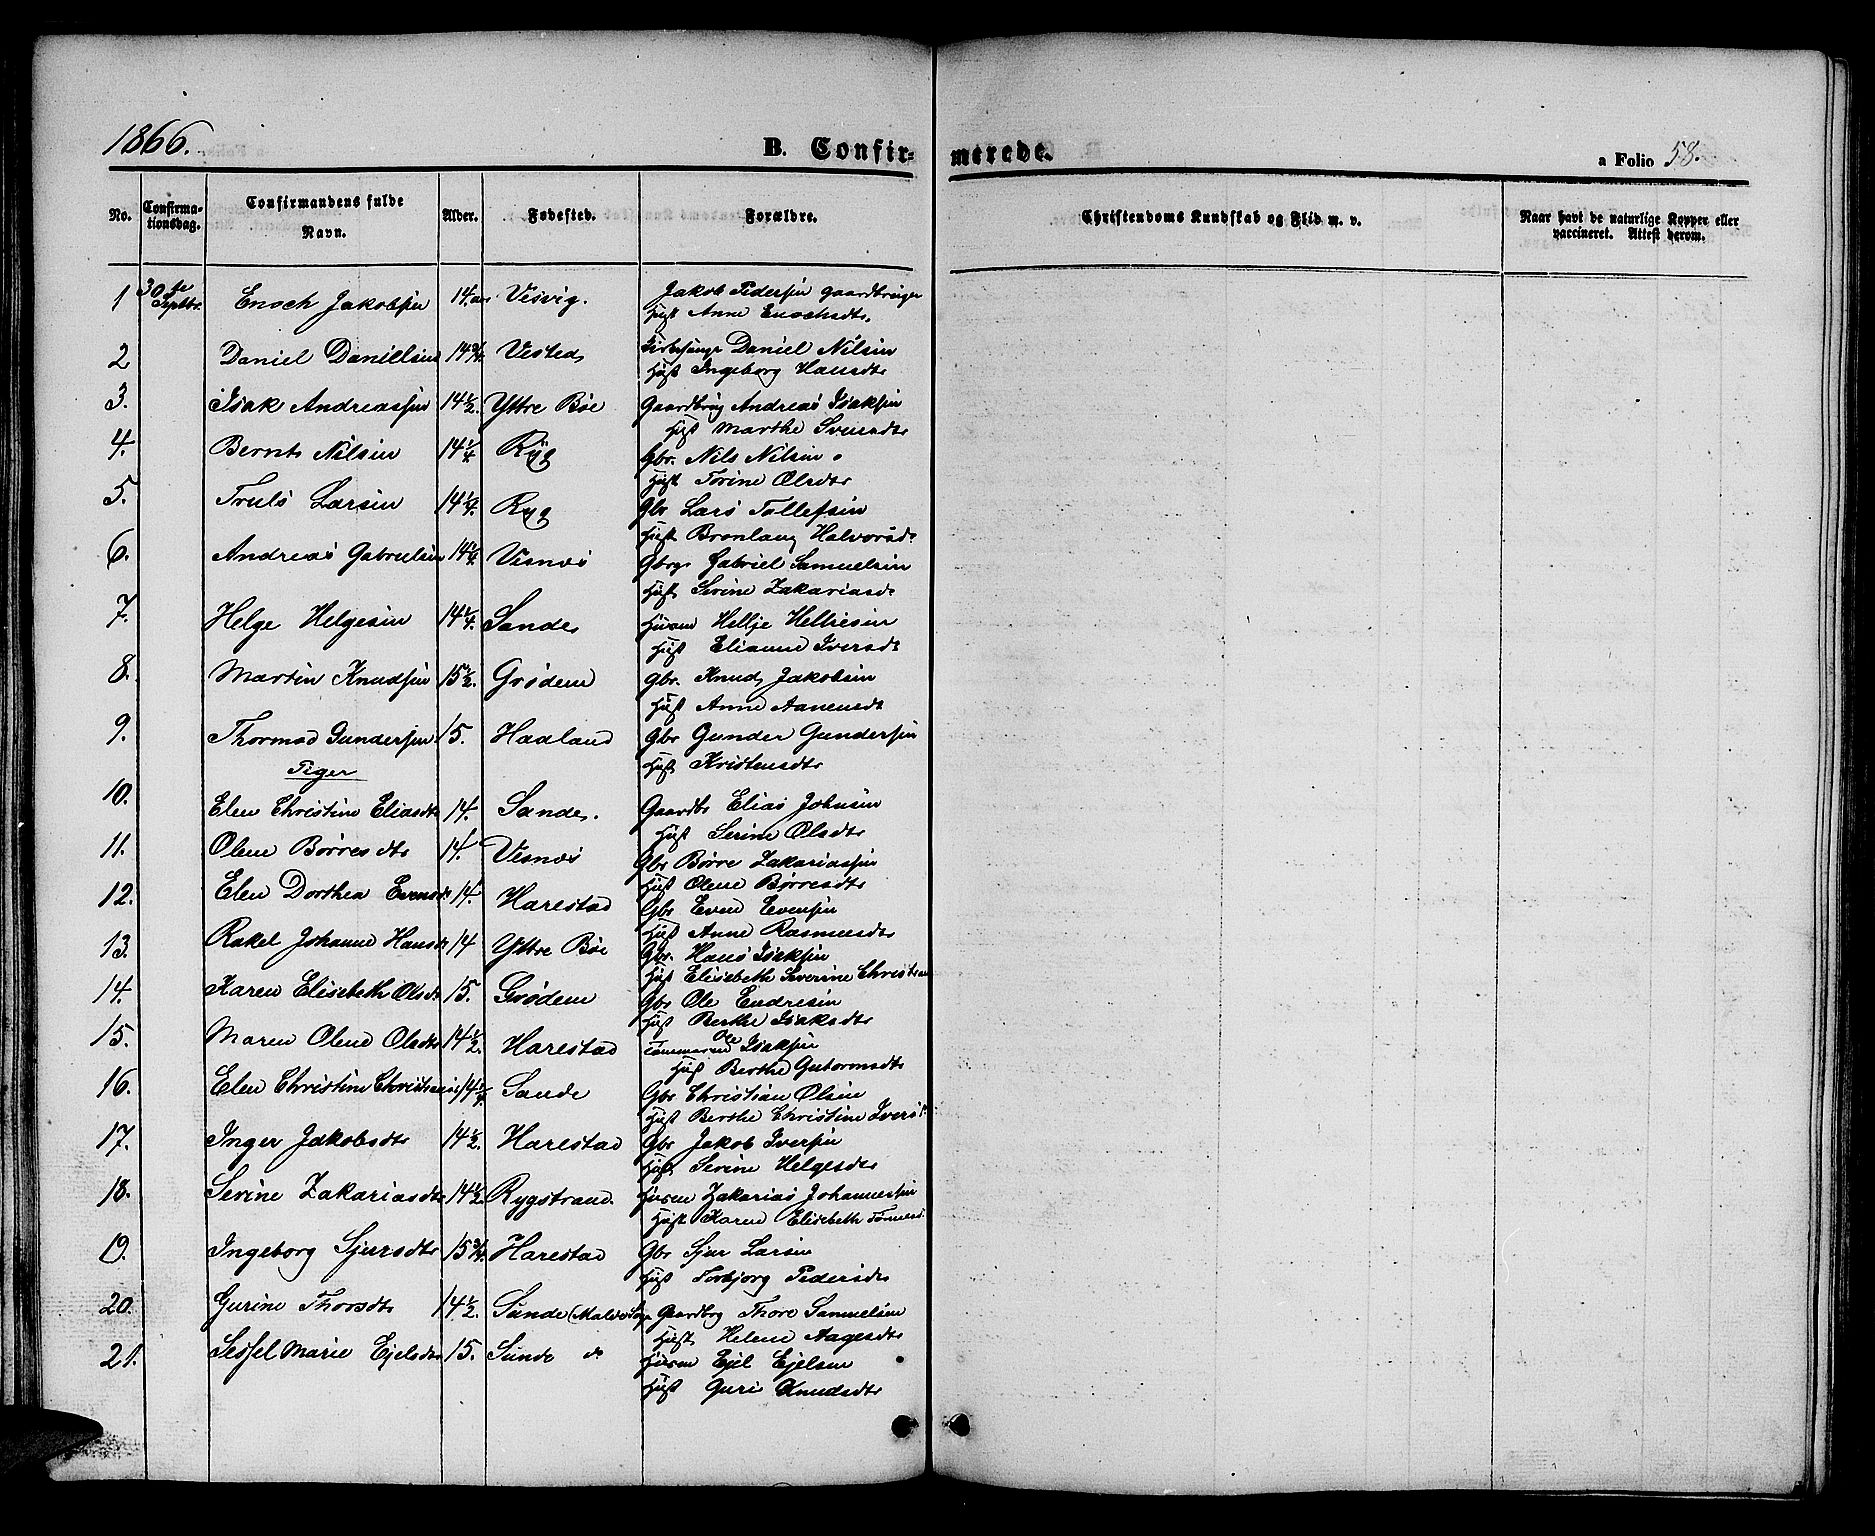 1866. B. Confir- merede. a Folio 58.
No. Confirma-tionsdag. Confirmandens fulde Navn. Alder. Fødested. Forældre. Christendoms Kundskab og Flid m. v. Naar havt de naturlige Kopper eller vaccineret. Attest herom.
1 30te Septbr. Enoch Jakobsen 14 Visvig. Jakob Pedersen Gaardbruger
Hust Anne Enochsdtr.
2 Daniel Daniellsen 14 3/4 Vested Daniel Nilsen
Hust Ingeborg Hansdtr
3. Isak Andreassen 14 1/2. Yttre Bøe Gaardbrug Andreas Isaksen
Hust Marthe Svensdtr
4. Bernt Nilsen 14 1/4. Ryg Gbr. Nils Nilsen
Hust Torine Olsdtr
5. Truls Larsen 14 1/4. Ryg Gbr Lars Tollefsen
Hust Bronlaug Halvorsd.
6. Andreas Gabrielsen 14 1/4. Visnes Gbrg. Gabriel Samuelsen
Hust Serine Zakariasd.
7. Helge Helgesen 14 1/4. Sande Husm Hellje Helliesen
Hust Elianne Iversdt
8. Martin Knudsen 15 1/2. Grødem Gbr. Knud Jakobsen
Hust Anne Aanensdt
9. Thormod Gundersen 15. Haaland Gbr Gunder Gundersen
Hust Kristensdtr
Piger
10. Elen Christine Eliasdtr 14. Sande. Gaardbr Elias Johnsen
Hust Serine Olsdtr
11. Olene Børresdtr 14. Visnes Gbr Børre Zakariassen
Hust Olene Børresdtr
12. Elen Dorthea Evensdt 14. Harestad Gbr Even Evensen
Hust Anne Rasmusdtr
13. Rakel Johanne Hansdt 14 Yttre Bøe Gbr. Hans Isaksen
Hust Elisebeth Severine Christian
14. Karen Elisebeth Olsdt 15. Grødem Gbr Ole Endresen
Hust Berthe Isaksdtr
15. Maren Olene Olsdtr 14 1/2. Harestad Tømmermd Ole Isaksen
Hust Berthe Gutormsdtr
16. Elen Christine Christians 14 1/4 Sande Gbr Christian Olsen
Hust Berthe Christine Ivers
17. Inger Jakobsdtr 14 1/2. Harestad Gbr Jakob Iversen
Hust Serine Helgesdtr
18. Serine Zakariasdtr 14 1/2 Rygstrand. Husm Zakarias Johannessen
Hust Karen Elisebeth Tønnesd.
19. Ingeborg Sjursdtr 15 3/4. Harestad Gbr Sjur Larsen
Hust Torbjorg Pedersdtr
20. Gurine Thorsdtr 14 1/2. Sunde (Malde Sogn Gaardbrg Thore Samuelsen
Hust Helene Aagesdtr
21. Sessel Marie Ejelsdtr 15. Sunde do Husm Ejel Ejelsen
Hust Guri Knudsdtr